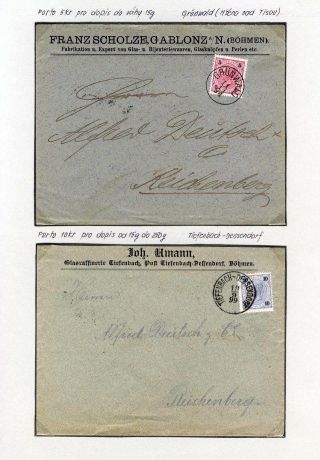 Porto 5kr pro dopis do váhy 15g Grünwald (Mšeno nad Nisou)
FRANZ SCHOLZE, GABLONZ a. N. (BÖHMEN).
Fabrikation u. Export von Glas- u. Bijouteriewaren, Glasknöpfen u. Perlen etc.
5
GRÜNWALD
Alfred Deutsch &
Reichenberg
Porto 10kr pro dopis od 15g do 250g Tiefenbach-Dessendorf
Joh. Umann,
Glasraffinerie Tiefenbach, Post Tiefenbach-Dessendorf, Böhmen.
10
TIEFENBACH-DESSENDORF
99
Herren
Alfred Deutsch & Co
Reichenberg.